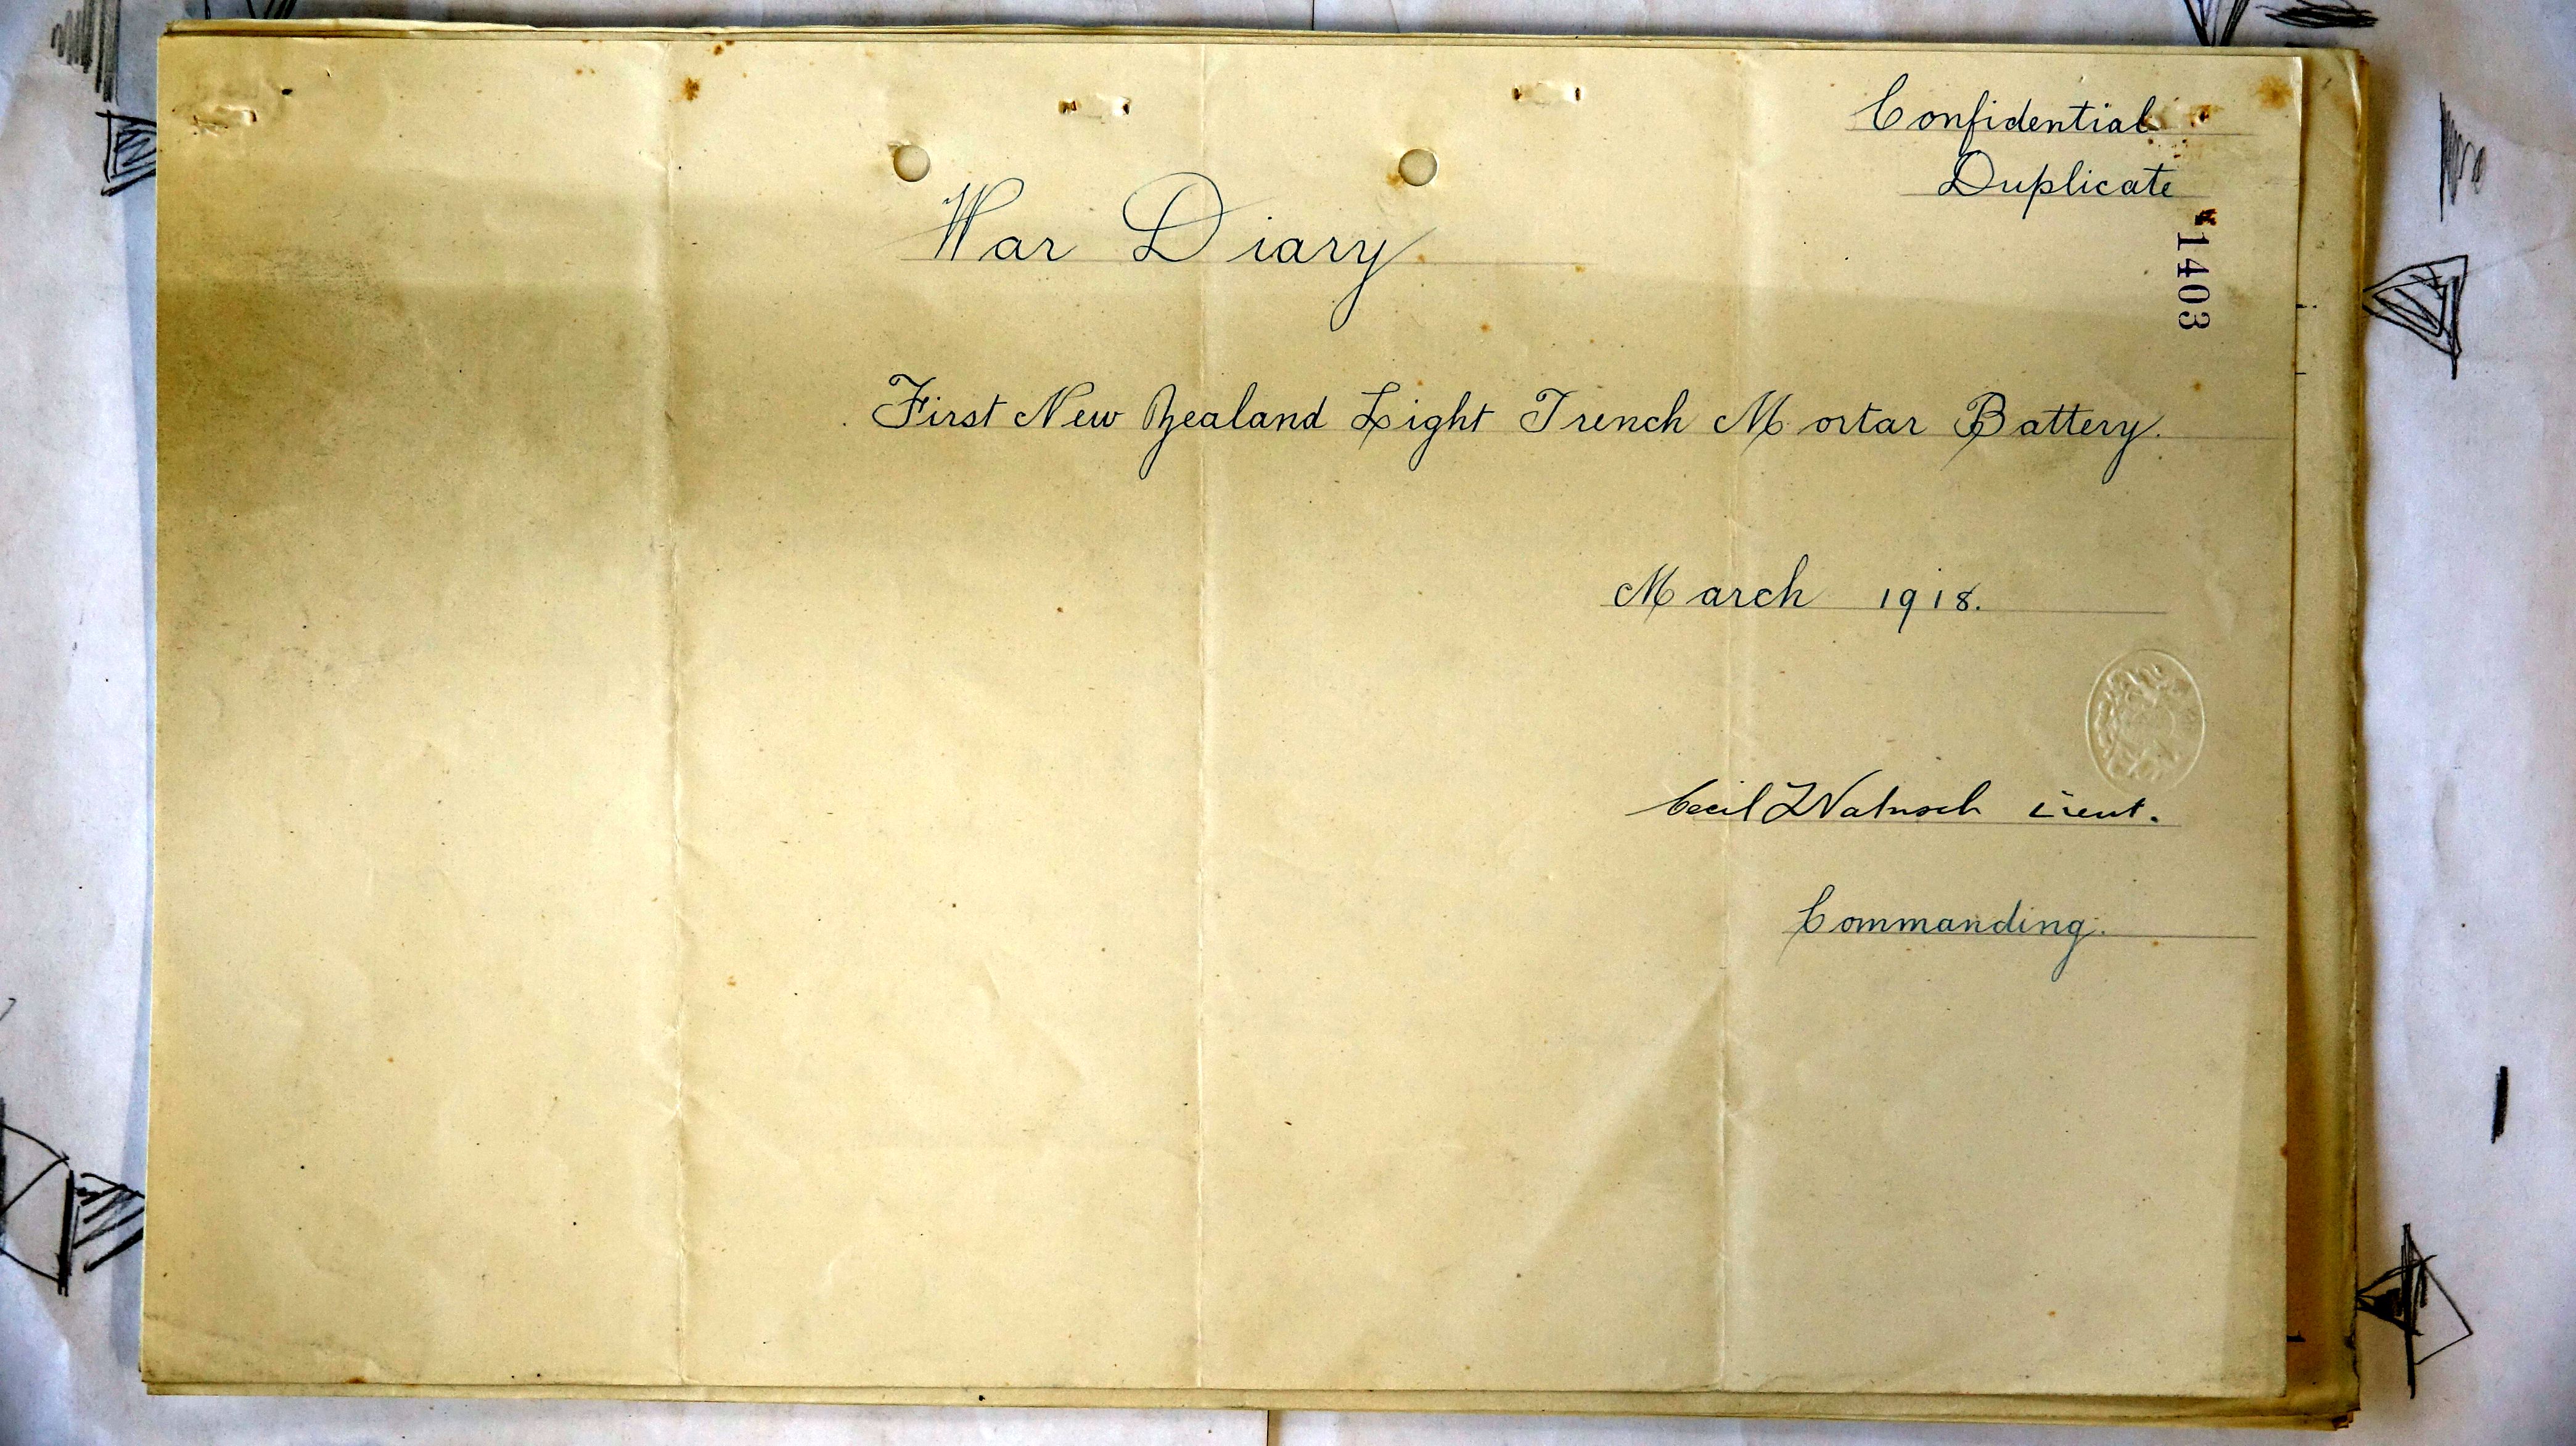 Confidential
Duplicate
1403
War Diary
First New Zealand Light Trench Mortar Battery.
March 1918.
Cecil Natusch Lieut.
Commanding.